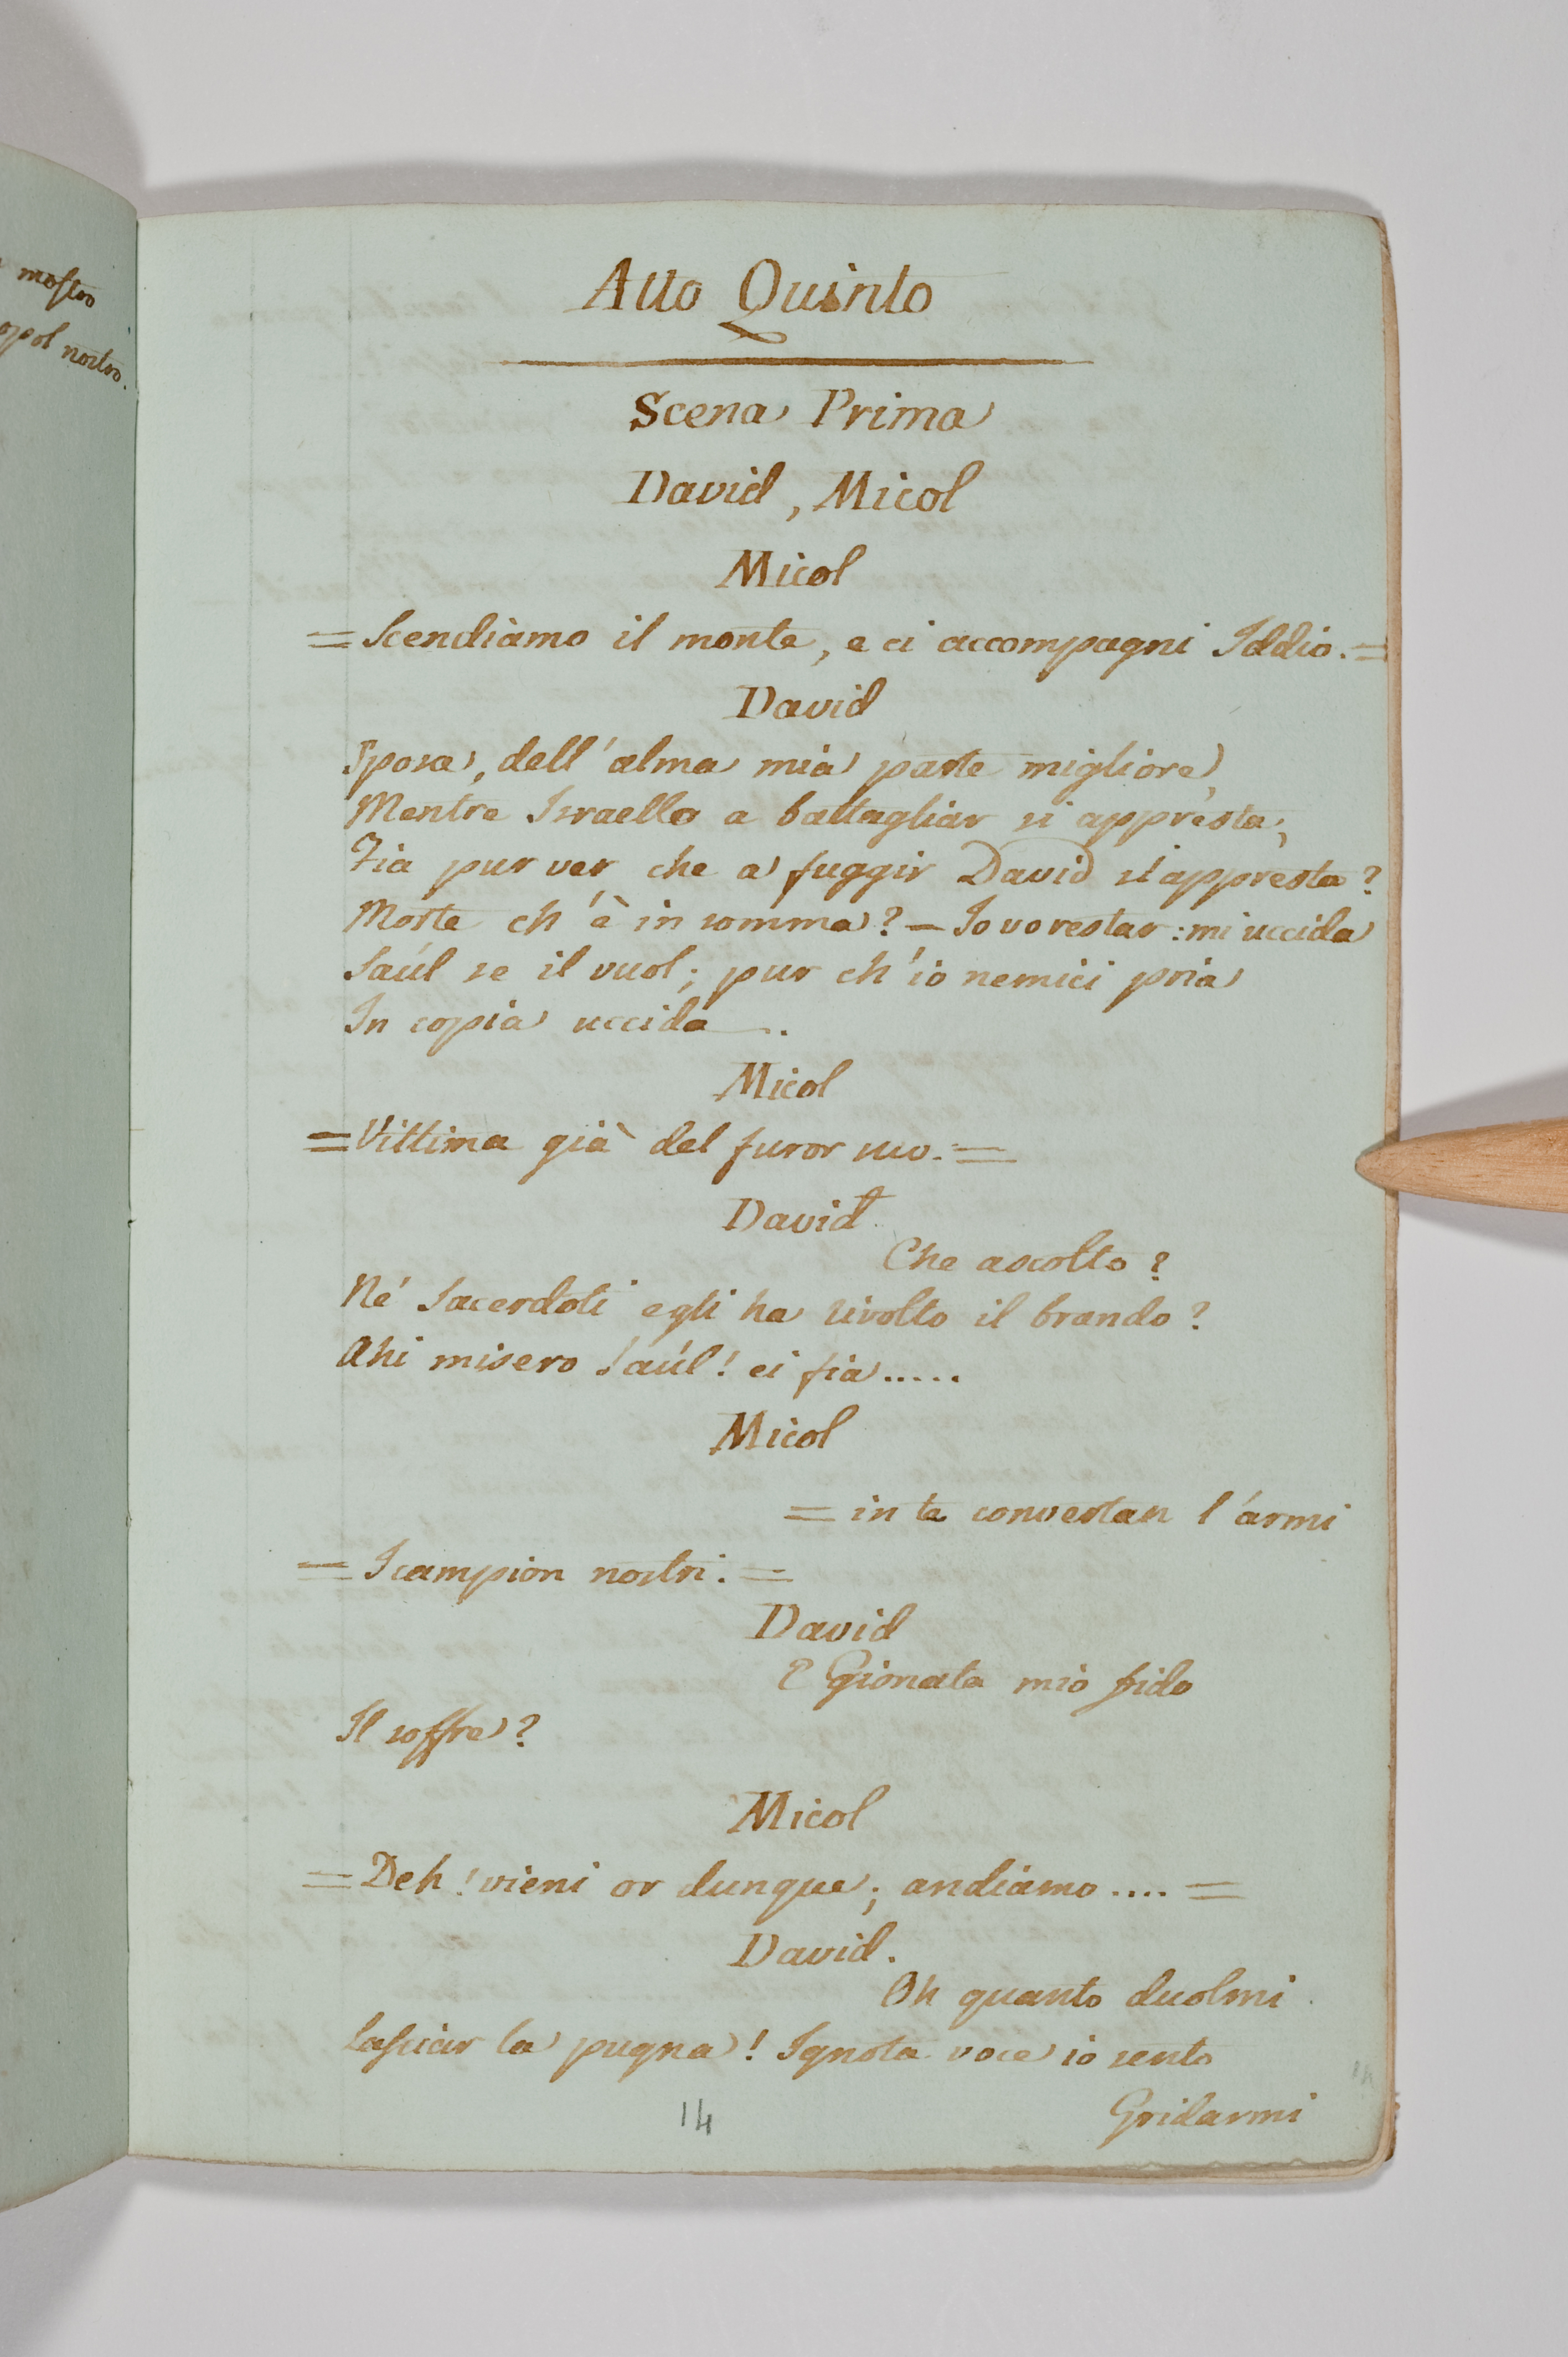 mostro
popol nostro.
Atto Quinto
Scena Prima
David, Micol
Micol
= Scendiamo il monte, e ci accompagni Iddio. =
David
Sposa, dell'alma mia parte migliore,
Mentre Israello a battagliar si appresta,
Fia pur ver che a fuggir David s'appresta?
Morte ch'è in somma? — Io vo restar: mi uccida
Saúl se il vuol; pur ch'io nemici pria
In copia uccida —.
Micol
= Vittima già del furor suo. =
David
Che ascolto?
Né Sacerdoti egli ha rivolto il brando?
Ahi misero Saúl! ei fia.....
Micol
= in te convertan l'armi
= I campion nostri. =
David
E Gionata mio fido
Il soffre?
Micol
= Deh! vieni or dunque; andiamo.... =
David.
Oh quanto duolmi
Lasciar la pugna! Ignota voce io sento
Gridarmi
14